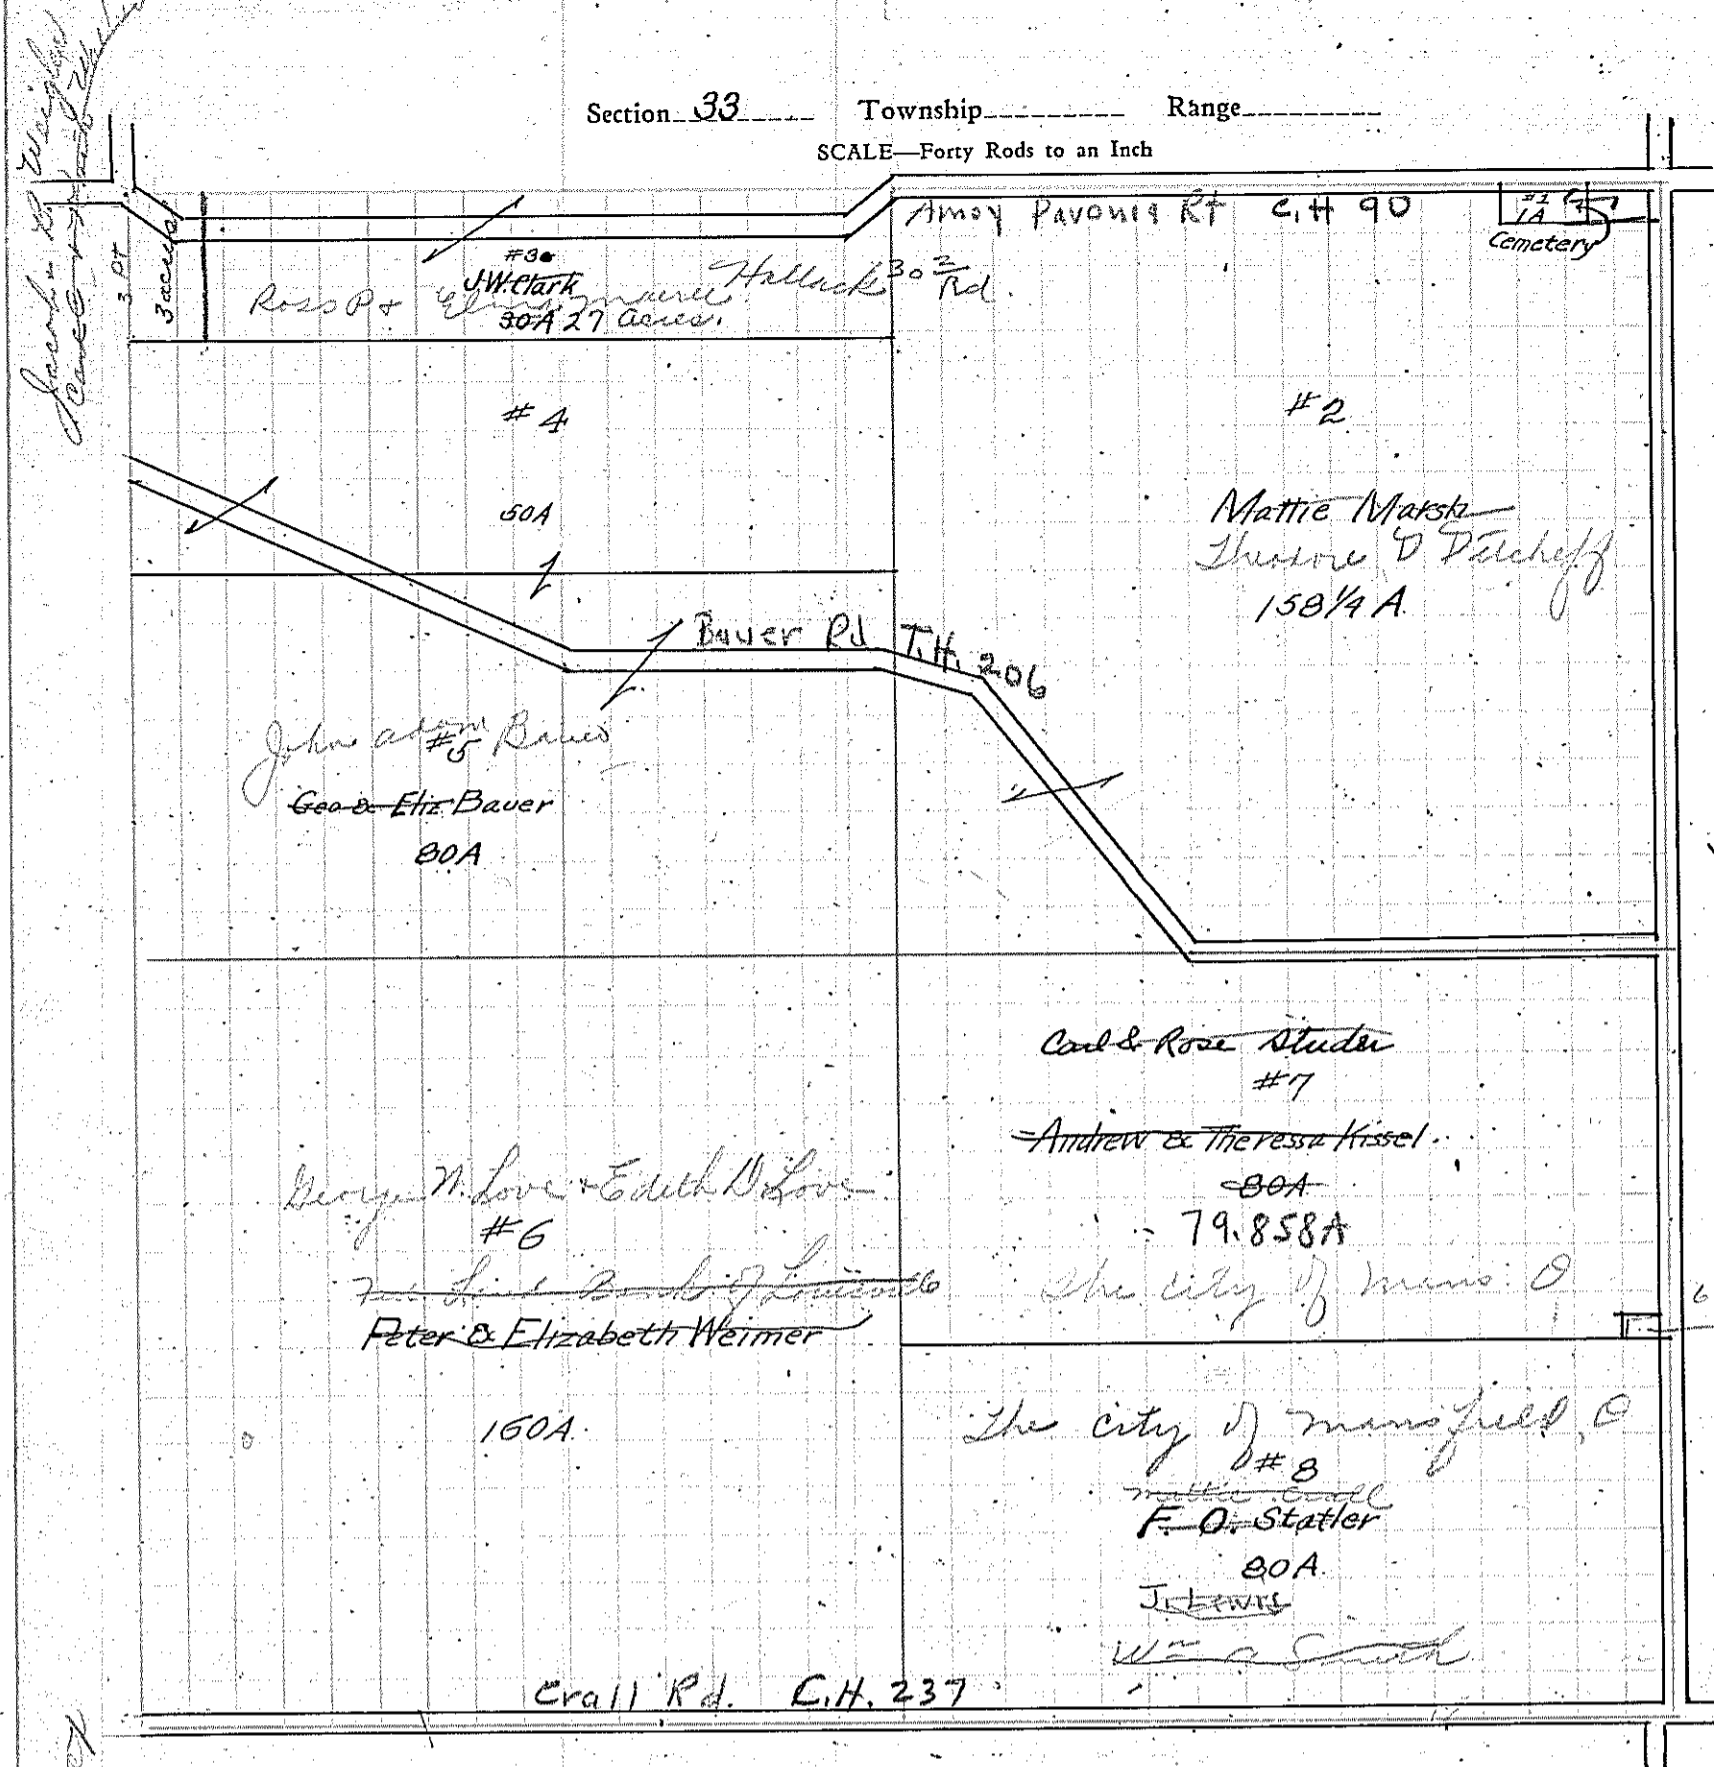 Section 33 Township Range
SCALE—Forty Rods to an Inch
Amoy Pavonia Rt C.H 90
#1
1A
Cemetery
3 Pt
3 acres
#3
J.W. Clark
Ross P +
Hallack 30 2/ Rd.
30A 27 acres.
#4
50A
#2
Mattie Marsh
Theodore D Detcheff
158 1/4 A.
Bauer Rd T.H. 206
John adam Bauer
#5
Geo & Eliz Bauer
80A
Carl & Rose Studer
#7
Andrew & Theressa Kissel
80A
79.858A
The city of mans. O
George W. Love + Edith D. Love
#6
Land Bank of Louisville
Peter & Elizabeth Weimer
160A.
The city of mansfield, O
#8
Mattie Crall
F. O. Statler
80A.
J. Lewis
Wm a Smith
Crall Rd. C.H. 237
6